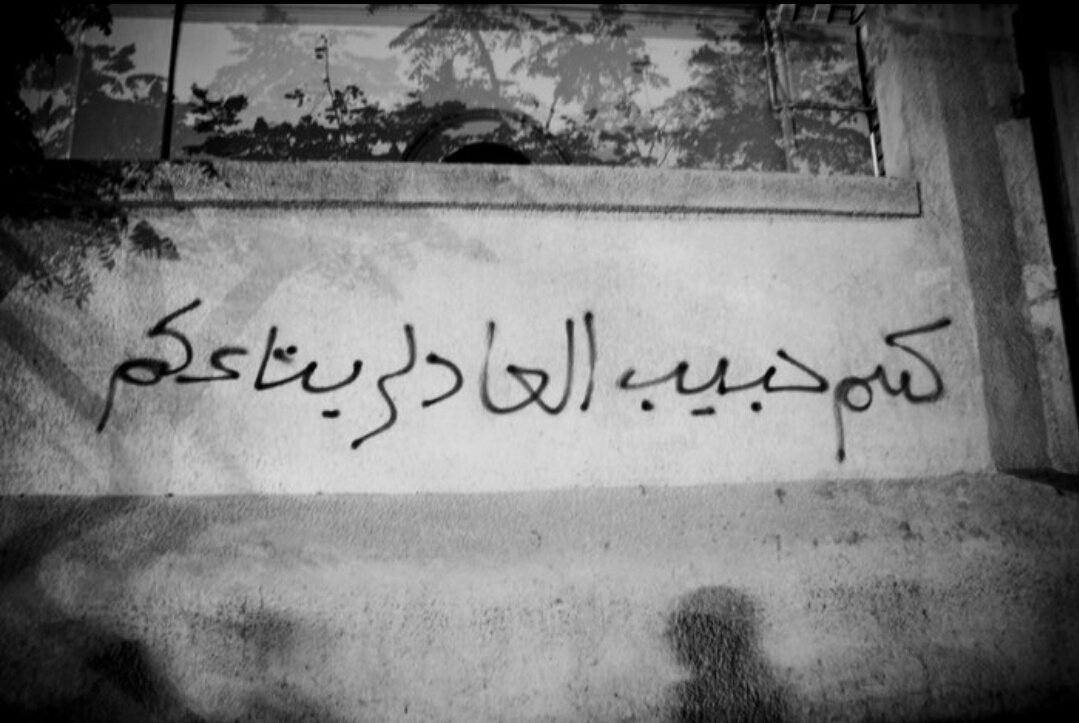 كسم حبيب العادلي بتاعكم